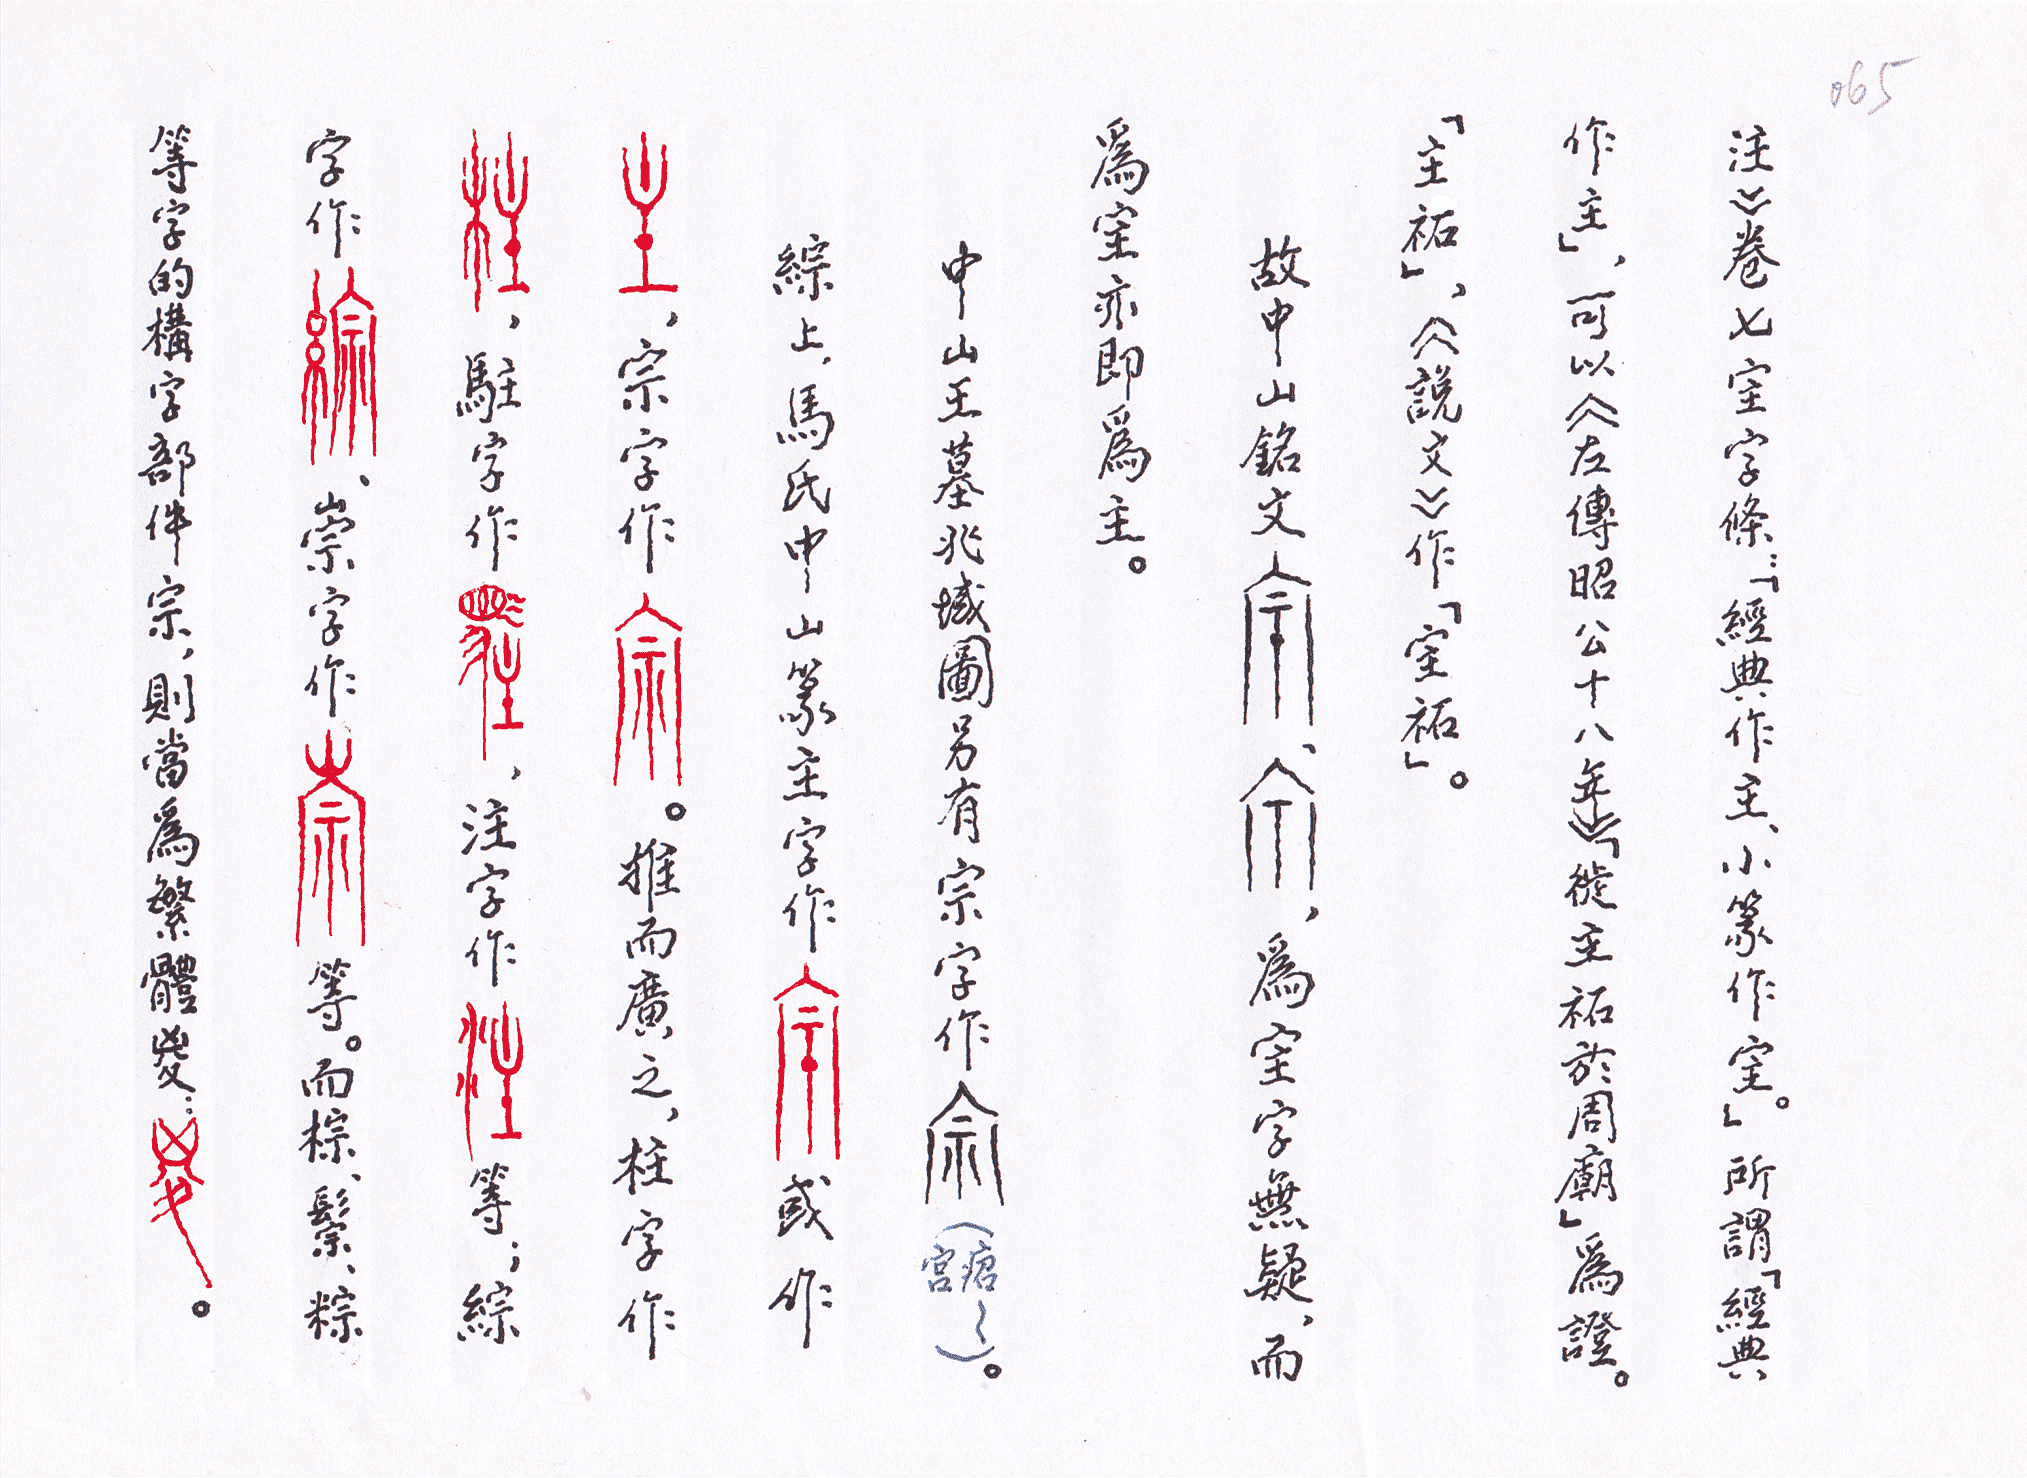 065
注》卷七宔字條：「經典作主、小篆作宔。」所謂「經典
作主」，可以《左傳昭公十八年》「徙主祏於周廟」為證。
「主祏」，《說文》作「宔祏」。
故中山銘文、，爲宔字無疑，而
爲宔亦即爲主。
中山王墓兆域圖另有宗字作宗（宫～）。
綜上，馬氏中山篆主字作宔或作
主，宗字作宗。推而廣之，柱字作
柱，駐字作駐，注字作注等；綜
字作綜、崇字作崇等。而棕、鬃、粽
等字的構字部件宗，則當爲繁體㚇：㚇。